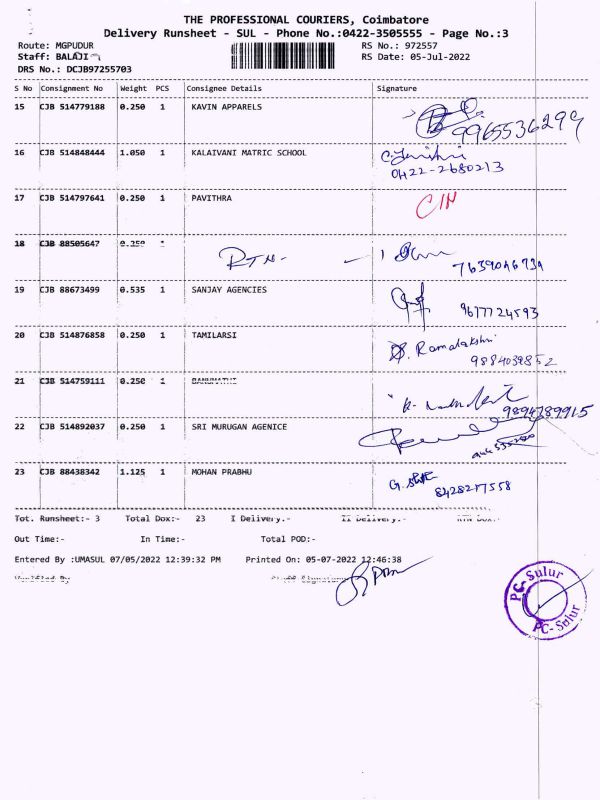 THE PROFESSIONAL COURIERS, Coimbatore
Delivery Runsheet - SUL - Phone No.:0422-3505555 - Page No.:3
Route: MGPUDUR RS No.: 972557
Staff: BALAJI RS Date: 05-Jul-2022
DRS No.: DCJB97255703
S No Consignment No Weight PCS Consignee Details Signature
15 CJB 514779188 0.250 1 KAVIN APPARELS
9965536299
16 CJB 514848444 1.050 1 KALAIVANI MATRIC SCHOOL
0422-2680213
17 CJB 514797641 0.250 1 PAVITHRA
18 CJB 88505647 0.250 1
RTN-
19 CJB 88673499 0.535 1 SANJAY AGENCIES
9617724593
20 CJB 514876858 0.250 1 TAMILARSI
Ramalakshmi
9884039852
21 CJB 514759111 0.250 1 BANUMATHI
9894289915
22 CJB 514892037 0.250 1 SRI MURUGAN AGENICE
23 CJB 88438342 1.125 1 MOHAN PRABHU
8428277558
Tot. Runsheet:- 3 Total Dox:- 23 I Delivery:- II Delivery:- RTN Dox:-
Out Time:- In Time:- Total POD:-
Entered By :UMASUL 07/05/2022 12:39:32 PM Printed On: 05-07-2022 12:46:38
Verified By Staff Signature
PC-Sulur
PC-Sulur